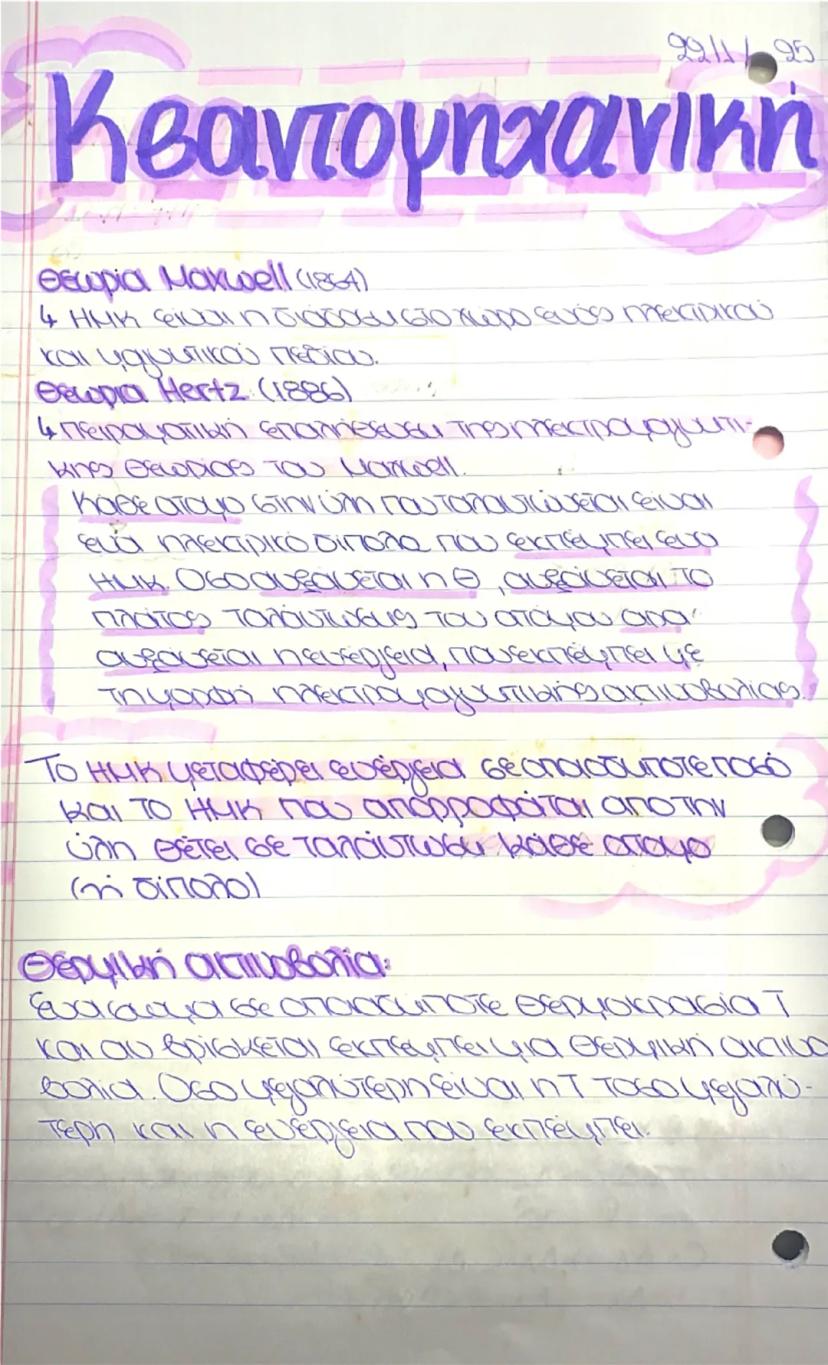 22/1/25
Κβαντομηχανική
Θεωρία Maxwell (1864)
↳ ΗΜΚ είναι η διάδοση στο χώρο ενός ηλεκτρικού
και μαγνητικού πεδίου.
Θεωρια Hertz (1886)
↳ Πειραματική επαλήθευση της ηλεκτρομαγνητι-
κης θεωρίας του Maxwell.
Κάθε άτομο στην ύλη που ταλαντώνεται είναι
ένα ηλεκτρικό δίπολο που εκπέμπει ένα
ΗΜΚ. Όσο αυξάνεται η Θ, αυξάνεται το
πλάτος ταλάντωσης του ατόμου άρα
αυξάνεται η ενέργεια, που εκπέμπει με
τη μορφή ηλεκτρομαγνητικής ακτινοβολίας.
Το ΗΜΚ μεταφέρει ενέργεια σε οποιοδήποτε ποσό
και το ΗΜΚ που απορροφάται από την
ύλη θέτει σε ταλάντωση κάθε άτομο
(ή δίπολο)
Θερμική ακτινοβολία:
Ένα σώμα σε οποιαδήποτε θερμοκρασία Τ
και αν βρίσκεται εκπέμπει μια θερμική ακτινο
βολία. Όσο μεγαλύτερη είναι η Τ τόσο μεγαλύ-
τερη και η ενέργεια που εκπέμπει.